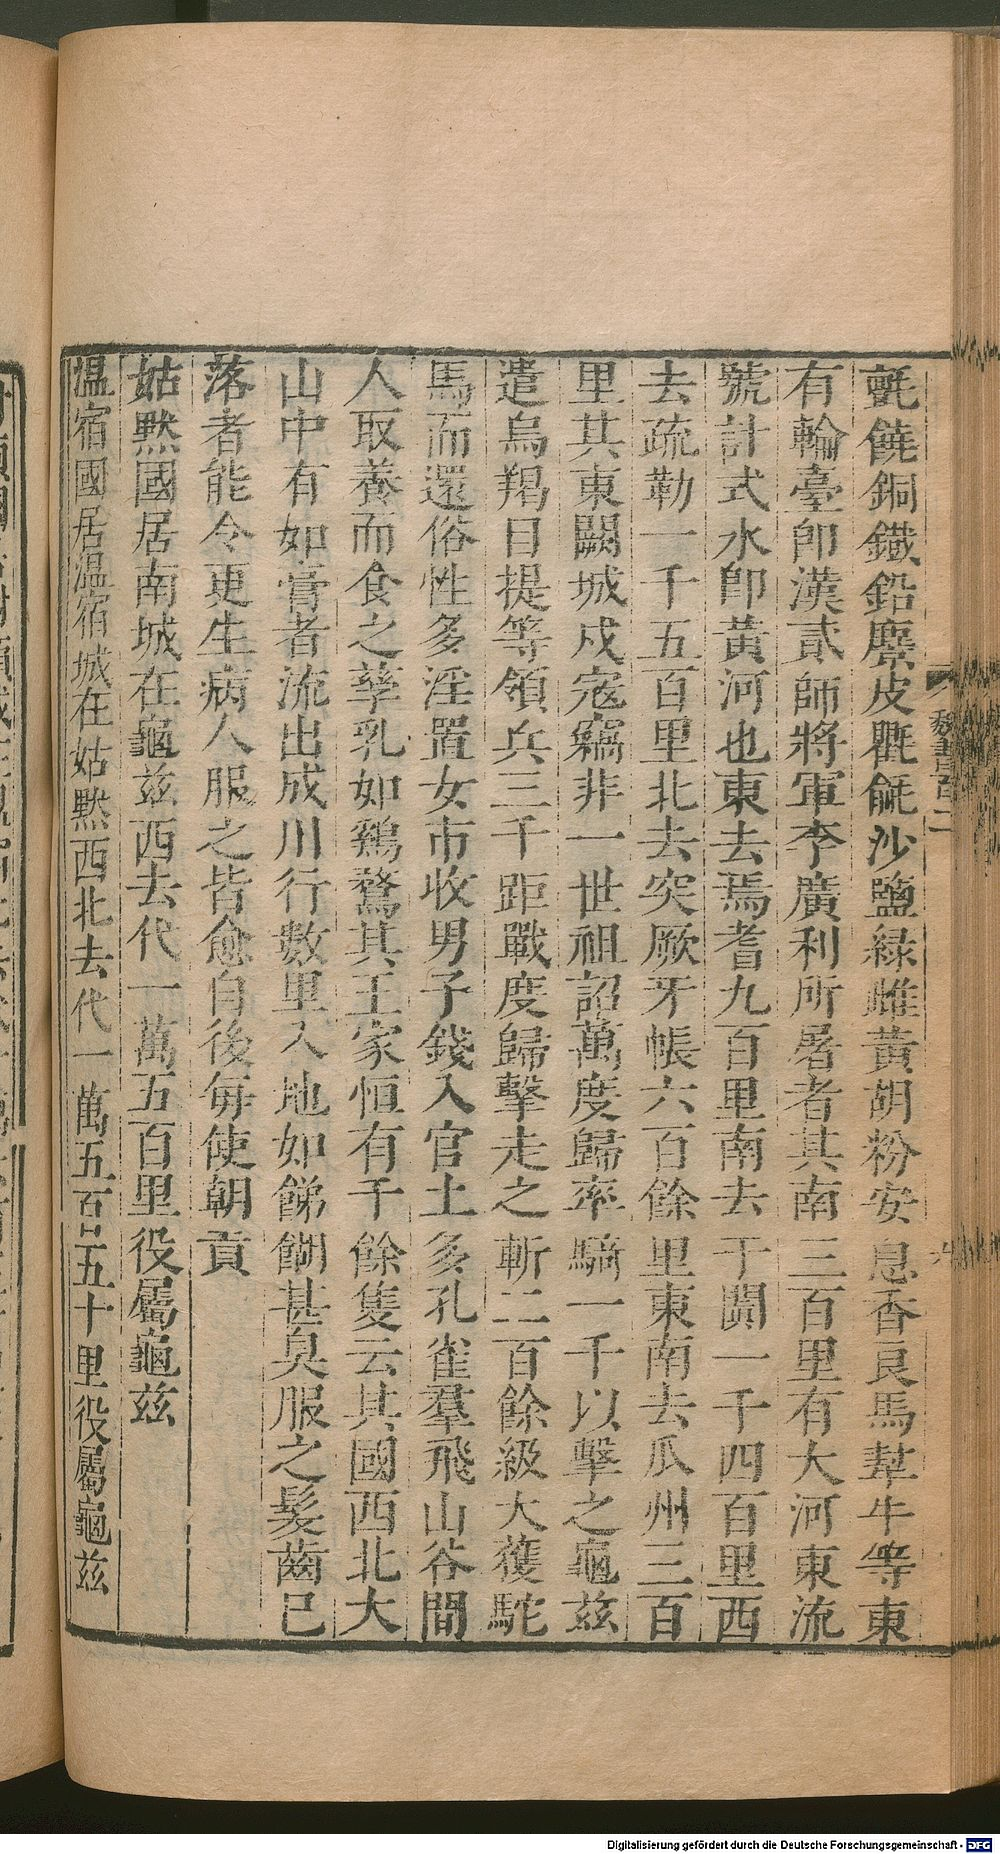 氈饒銅鐵鉛麖皮氍毹沙鹽緑雌黃胡粉安息香良馬犎牛等東
有輪臺卽漢貳師將軍李廣利所屠者其南三百里有大河東流
號計式水卽黃河也東去焉耆九百里南去于闐一千四百里西
去疏勒一千五百里北去突厥牙帳六百餘里東南去瓜州三百
里其東闕城戍寇竊非一世祖詔萬度歸率騎一千以擊之龜茲
遣烏羯目提等領兵三千距戰度歸擊走之斬二百餘級大獲駝
馬而還俗性多淫置女市收男子錢入官土多孔雀羣飛山谷間
人取養而食之孳乳如鷄鶩其王家恒有千餘隻云其國西北大
山中有如膏者流出成川行數里入地如餳餬甚臭服之髮齒已
落者能令更生病人服之皆愈自後每使朝貢
姑黙國居南城在龜茲西去代一萬五百里役屬龜茲
温宿國居温宿城在姑黙西北去代一萬五百五十里役屬龜茲
魏書百二
Digitalisierung gefördert durch die Deutsche Forschungsgemeinschaft - DFG